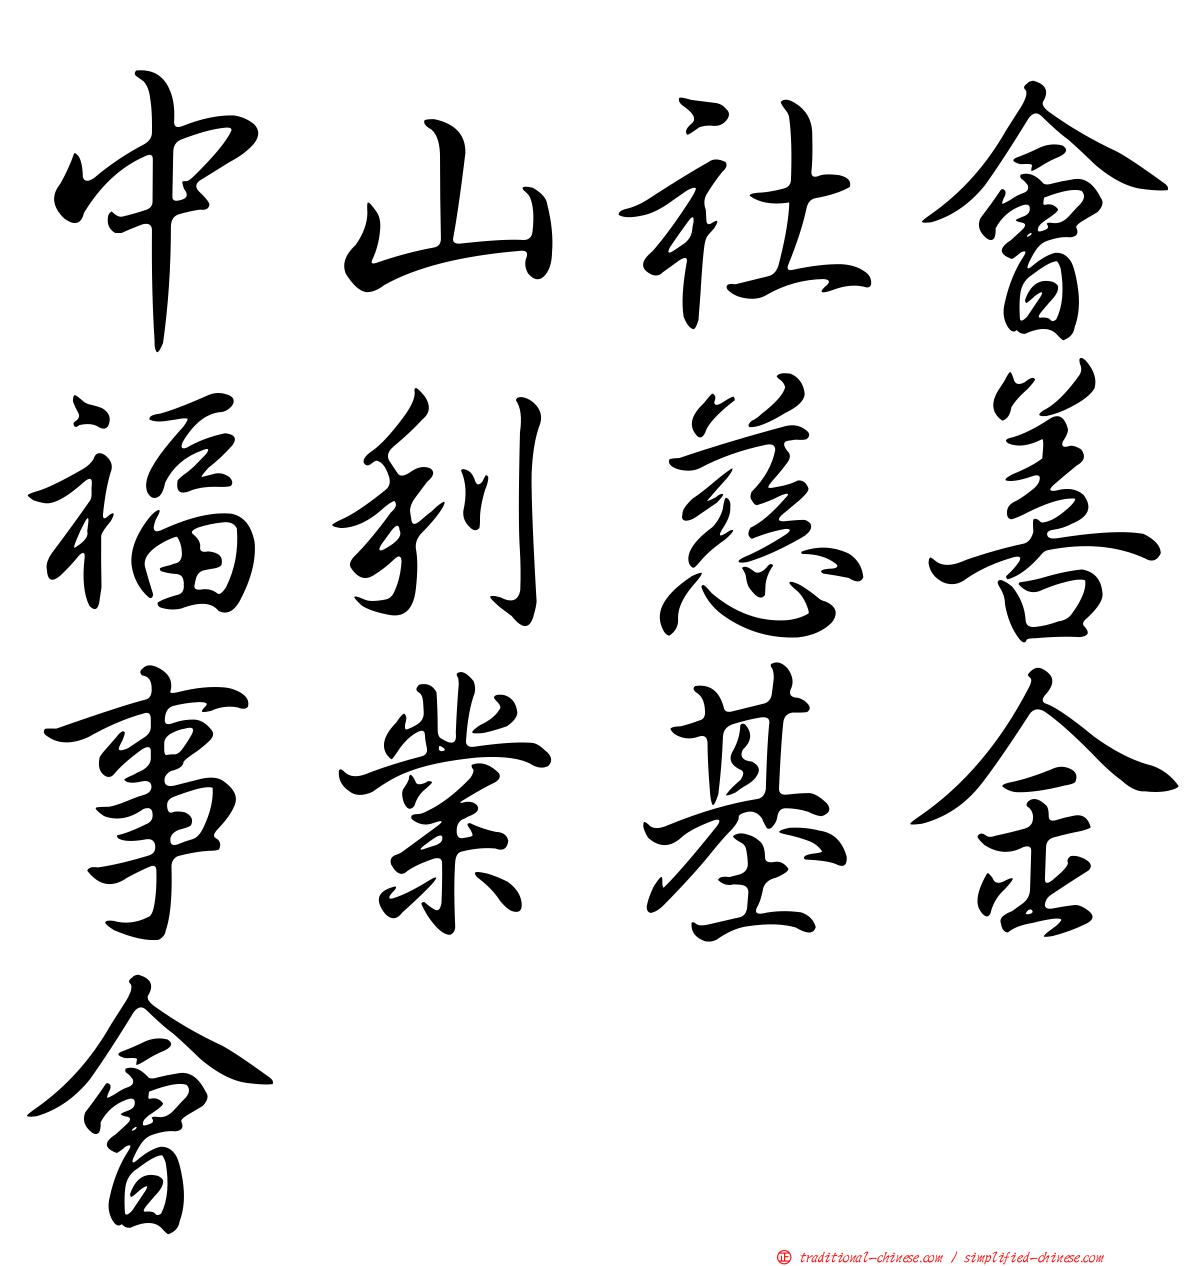 中山社會
福利慈善
事業基金
會
正 traditional-chinese.com / simplified-chinese.com